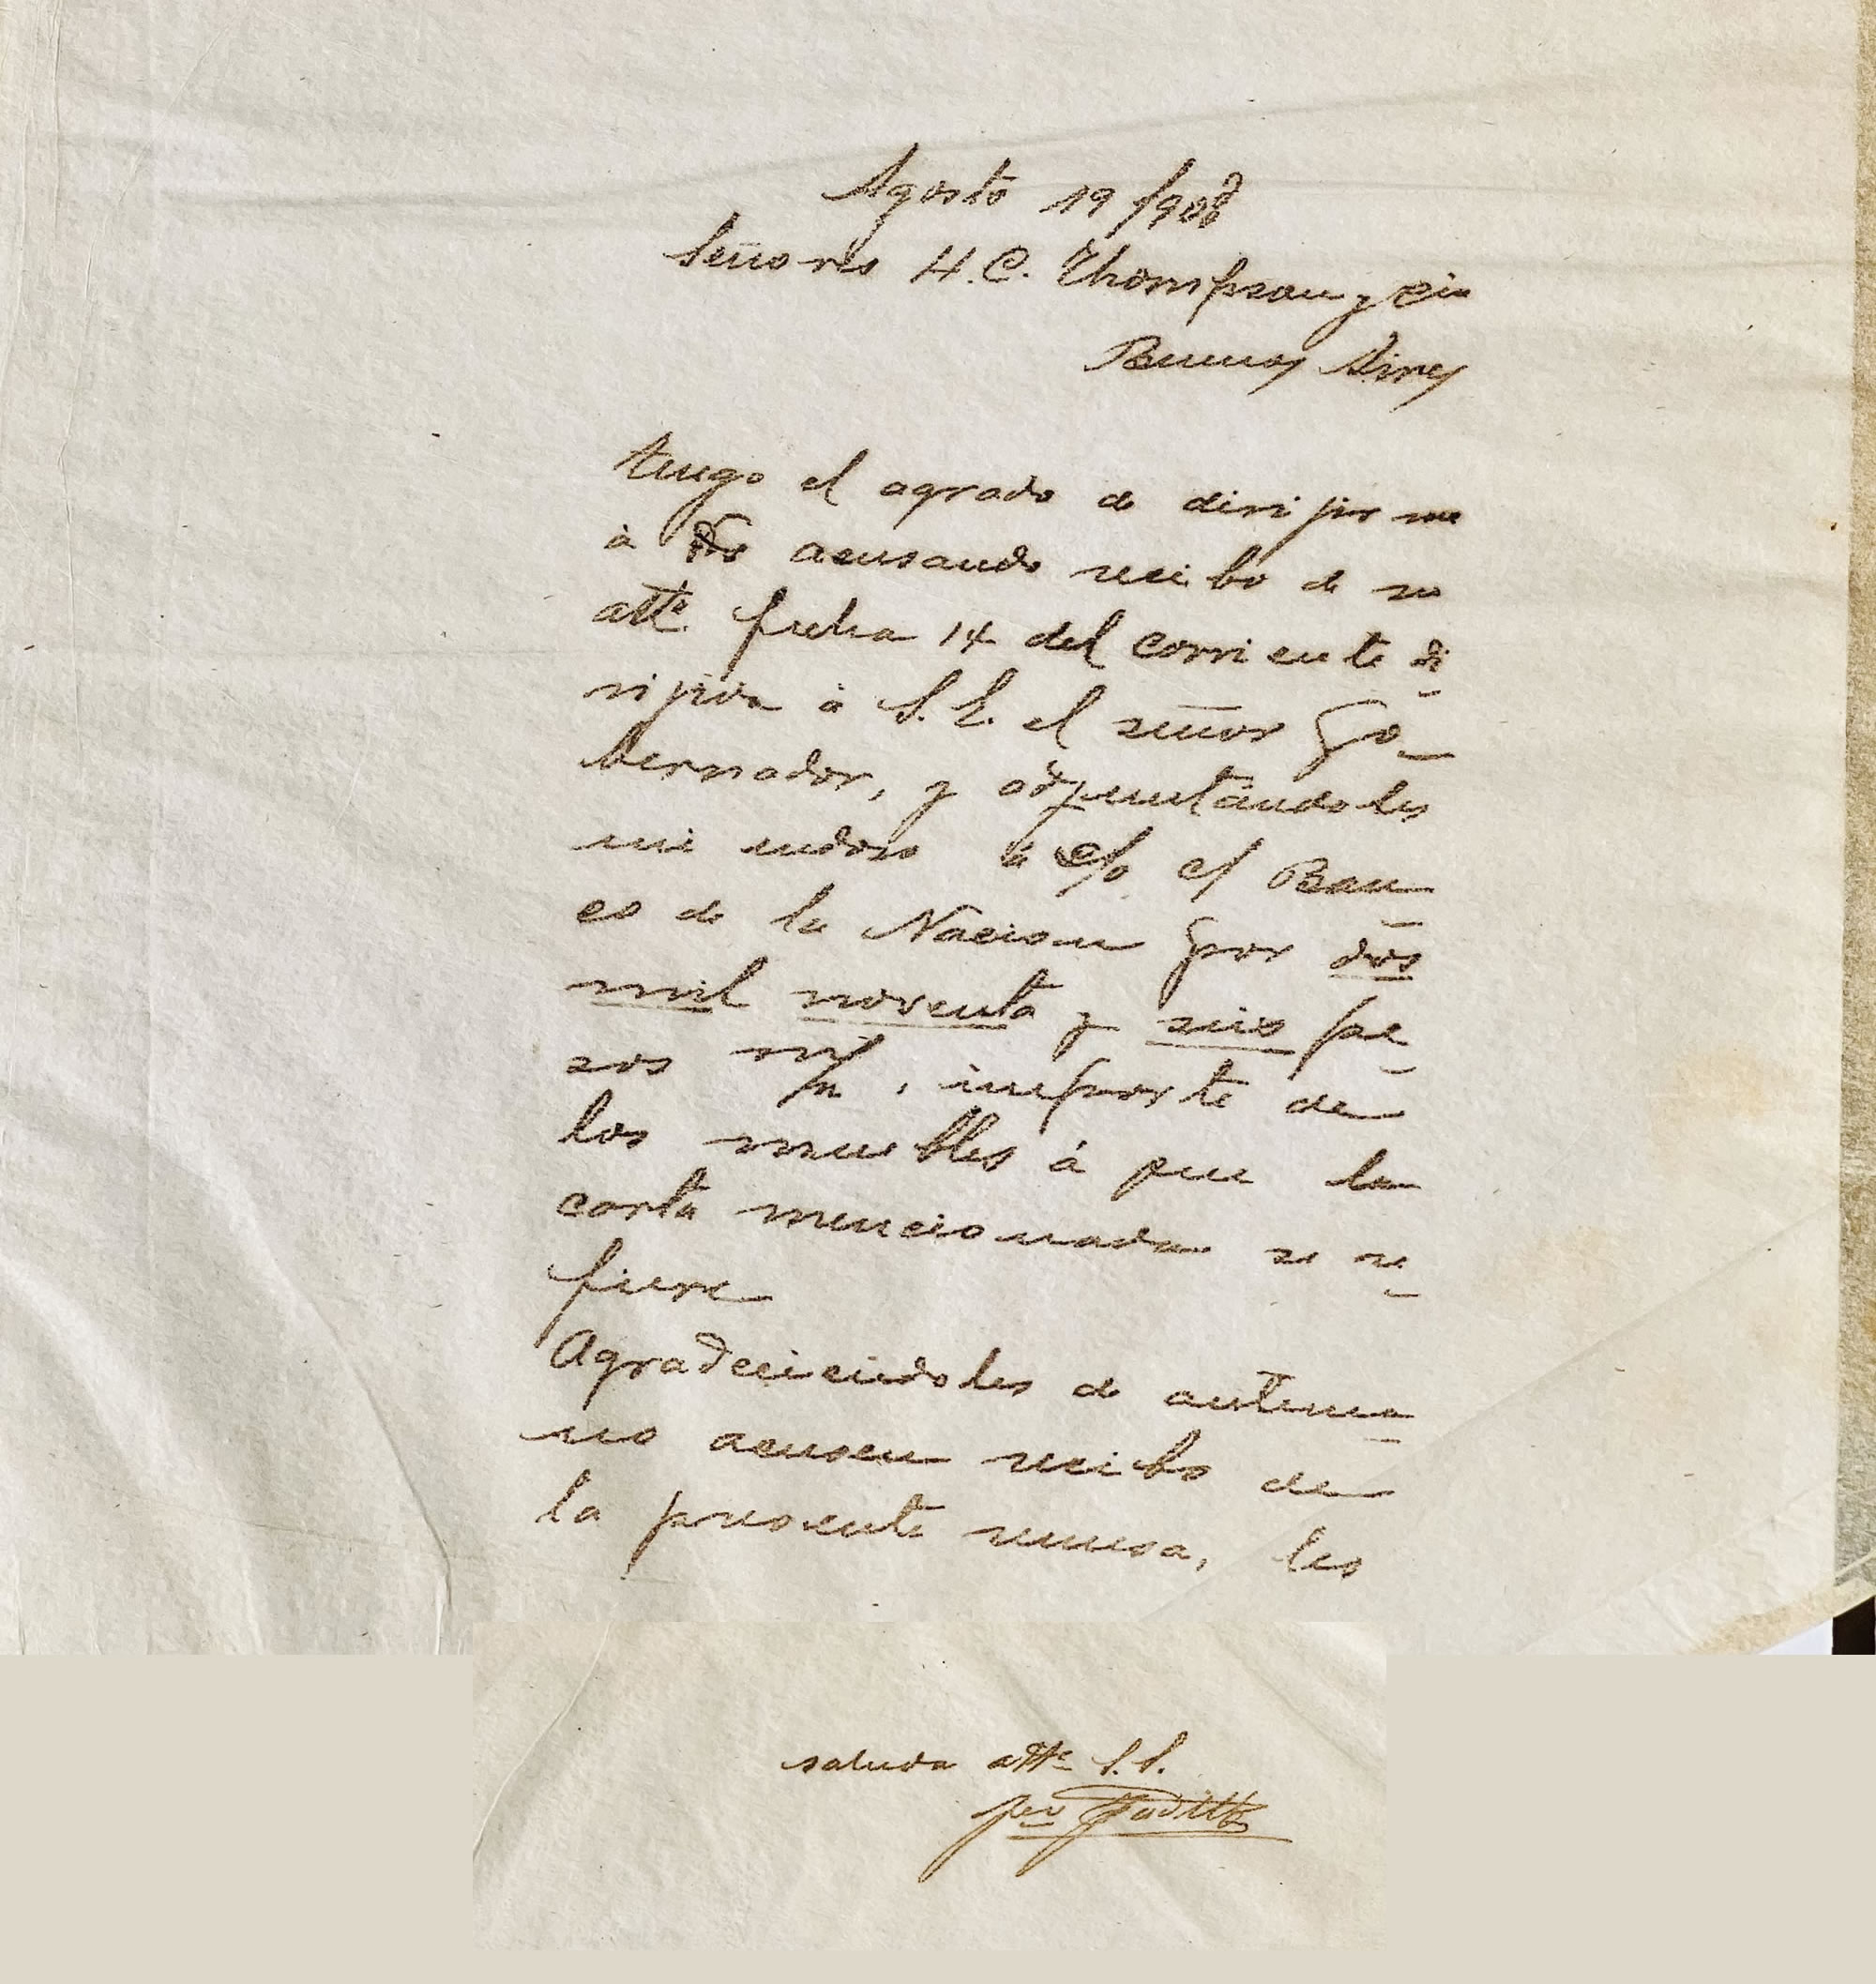 Agosto 19/908
Señores H.C. Thompson y Cia
Buenos Aires
tengo el agrado de dirijirme
à Vds acusando recibo de su
atte fecha 14 del corriente di
rijida à S.E. el señor Go-
bernador, y adjuntándoles
mi endoso à c/ el Ban
co de la Nacion por dos
mil noventa y seis pe
sos m/n, importe de
los muebles á que la
carta mencionada se re
fiere
Agradeciendoles de antema
no acusen recibo de
la presente remesa, les
saluda atte S.S.